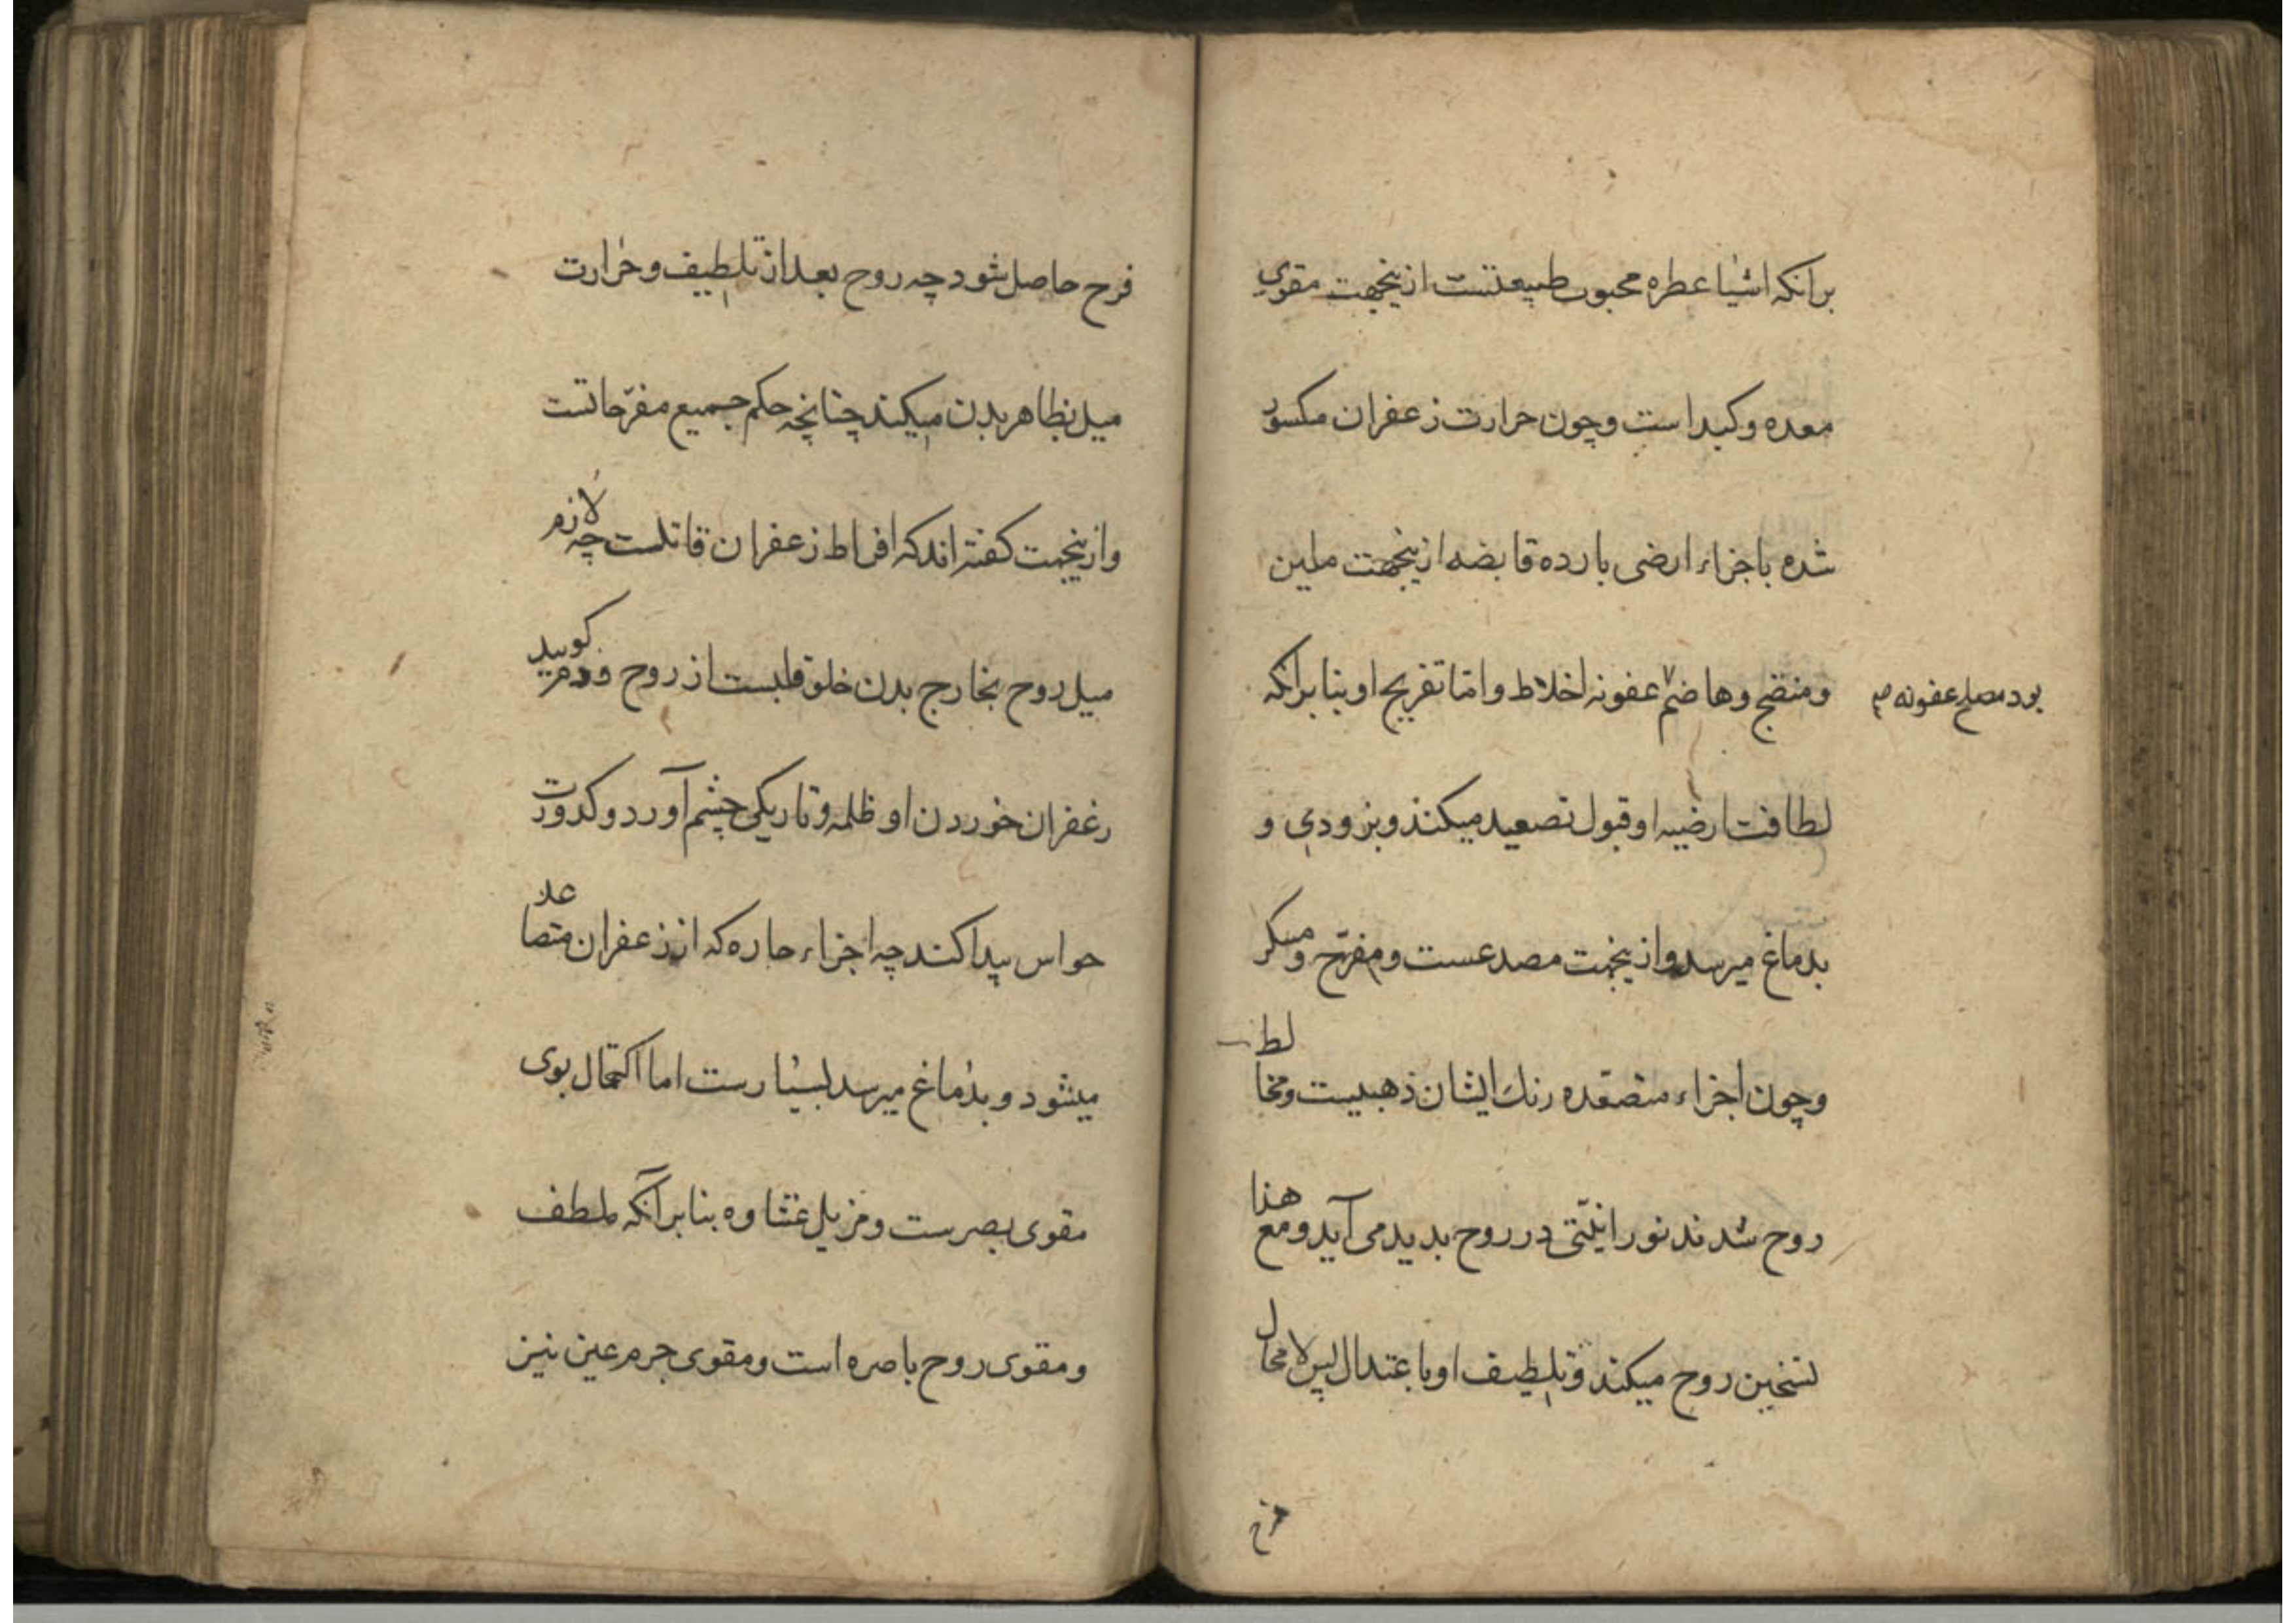 برانکه اشیا عطره محبوب طبیعتست ازینجهت مقوی
معده و کبد است و چون حرارت زعفران مکسور
شده با جزاء ارضی بارده قابضه ازینجهت ملین
و منضج و هاضم عفونه اخلاط و اما تفریح او بنا برانکه
بود مصلح عفونه صح
لطافت ارضیه او قبول تصعید میکند و بزودی و
بدماغ میرسد و ازینجهت مصدعست و مفرّح و مسکر
و چون اجزاء متصعّده رنك ایشان ذهبیست و مخالط
روح شدند نورانیّتی در روح بدید می آید و مع هذا
تسخین روح میکند و تلطیف او باعتدال پس لا محال
فرح
فرح حاصل شود چه روح بعد از تلطیف و حرارت
میل بظاهر بدن میکند چنانچه حکم جمیع مفرّحاتست
و ازینجهت کفته اند که افراط زعفران قاتلست چه لازم
میل روح بخارج بدن خلو قلبست از روح و کویید
زعفران خوردن او ظلمه و تاریکی چشم آورد و کدورت
حواس پیدا کند چه اجزاء حاره که از زعفران متصاعد
میشود و بدماغ میرسد بسیارست اما اکتحال بوی
مقوی بصرست و مزیل غشاوه بنا برآنکه ملطف
و مقوی روح باصره است و مقوی جرم عین نیز